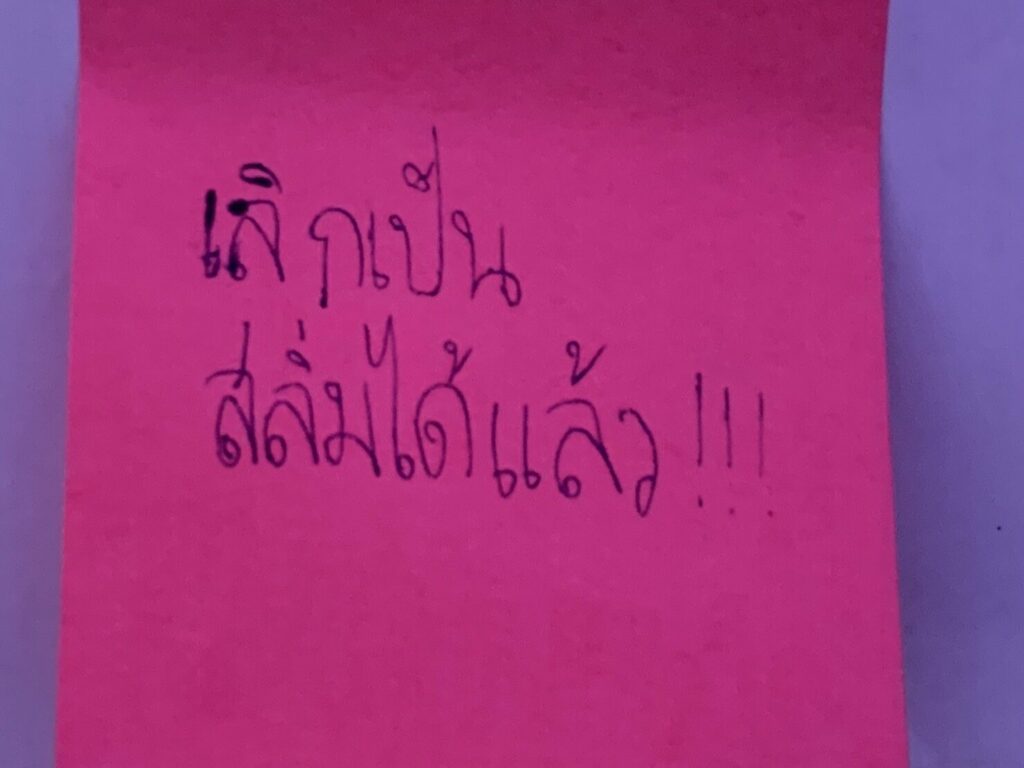 เลิกเป็น
สลิ่มได้แล้ว!!!